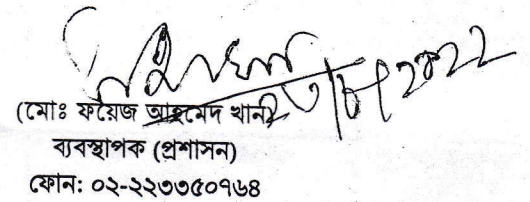 (মোঃ ফয়েজ আহমেদ খান)
ব্যবস্থাপক (প্রশাসন)
ফোন: ০২-২২৩৩৫০৭৬৪